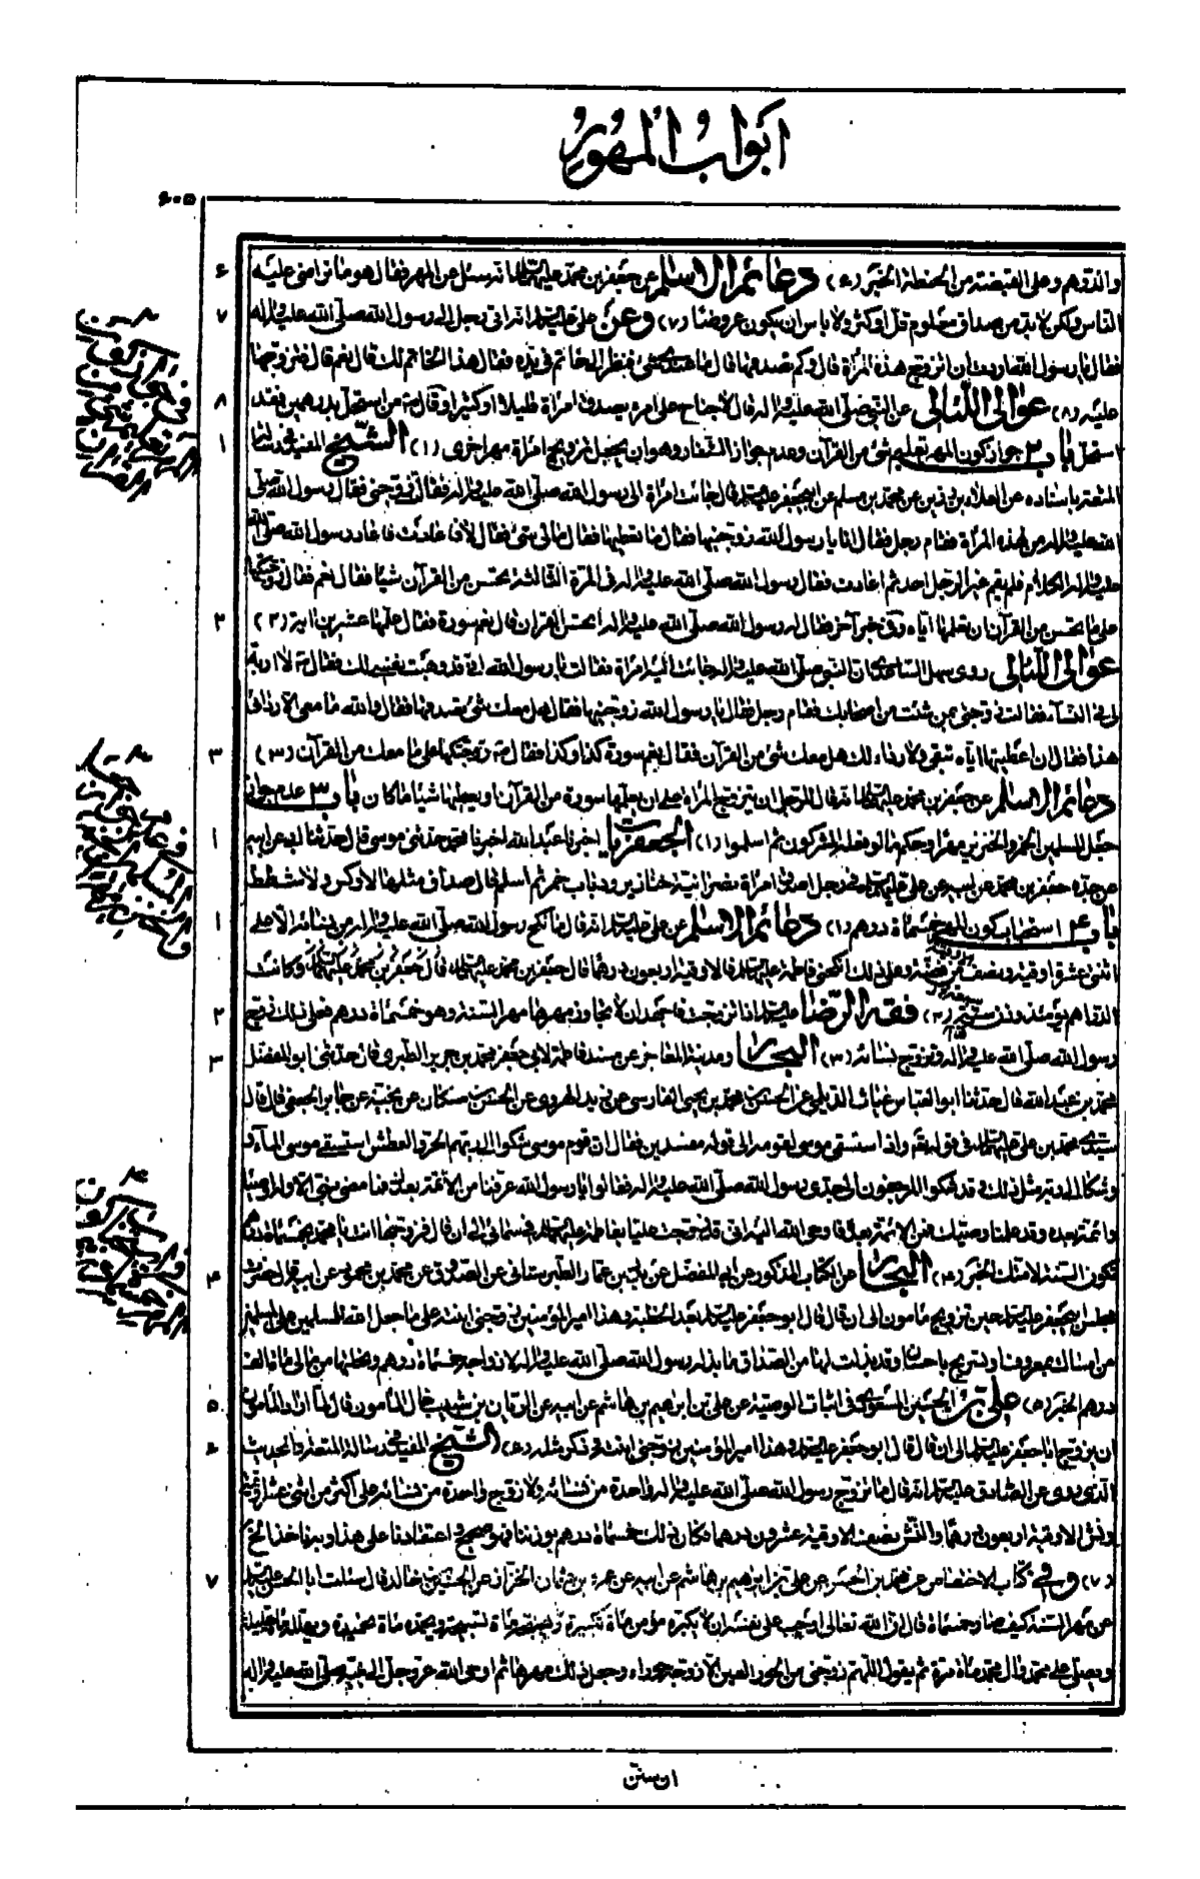 ابواب المهور
٦٠٥
والدرهم وعلى القبضة من الحنطة الخبر (٦) دعائم الاسلام عن جعفر بن محمد عليهما انه سئل عن المهر فقال هو ما تراضى عليه
الناس ولكن لا بد من صداق معلوم قل او كثر ولا باس ان يكون عروضا (٧) وعن علي عليه انه اتى رجل الى رسول الله صلى الله عليه واله
فقال يا رسول الله اردت ان اتزوج هذه المرأة قال وكم تصدقها قال ما عندي شئ فنظر الى خاتم في يده فقال هذا الخاتم لك قال نعم قال فتزوجها
عليه (٨) عوالي اللئالي عن النبي صلى الله عليه واله قال لا جناح على امرء يصدق امرأة قليلا او كثيرا وقال من استحل بدرهمين فقد
استحل باب ٢ جواز كون المهر تعليم شئ من القرآن وعدم جواز الشغار وهو ان يجعل تزويج امرأة مهر اخرى (١) الشيخ المفيد في رسالة
المتعة باسناده عن العلاء بن رزين عن محمد بن مسلم عن ابي جعفر عليه قال جائت امرأة الى رسول الله صلى الله عليه واله فقالت زوجني فقال رسول الله صلى
الله عليه واله من لهذه المرأة فقام رجل فقال انا يا رسول الله زوجنيها فقال ما تعطيها فقال ما لي شئ فقال لا فاعادت فاعاد رسول الله صلى الله
عليه واله الكلام فلم يقم غير الرجل احد ثم اعادت فقال رسول الله صلى الله عليه واله في المرة الثالثة تحسن من القرآن شيئا فقال نعم فقال زوجتكها
على ما تحسن من القرآن ان تعلمها اياه وفي خبر آخر فقال له رسول الله صلى الله عليه واله اتحسن القرآن قال نعم سورة فقال علمها عشرين اية (٢)
عوالي اللئالي روى سهل الساعدي ان النبي صلى الله عليه واله جائت اليه امرأة فقالت يا رسول الله اني قد وهبت نفسي لك فقال لا اربة
لي في النسآء فقالت زوجني بمن شئت من اصحابك فقام رجل فقال يا رسول الله زوجنيها فقال هل معك شئ تصدقها فقال والله ما معي الا ردائي
هذا فقال ان اعطيتها اياه تبقى ولا رداء لك هل معك شئ من القرآن فقال نعم سورة كذا وكذا فقال زوجتكها على ما معك من القرآن (٣)
دعائم الاسلام عن جعفر بن محمد عليهما انه قال للرجل ان يتزوج المرأة على ان يعلمها سورة من القرآن او يعطيها شيئا ما كان باب ٣ عدم جواز
جعل المسلمين الخمر والخنزير مهرا وحكم ما لو فعله المشركون ثم اسلموا (١) الجعفريات اخبرنا عبد الله اخبرنا محمد حدثني موسى قال حدثنا ابي عن ابيه
عن جده جعفر بن محمد عن ابيه عن علي عليه في رجل اصدق امرأة نصرانية خنازير ودنان خمر ثم اسلم قال صداق مثلها لا وكس ولا شطط
باب ٤ استحباب كون المهر خمسمائة درهم (١) دعائم الاسلام عن علي عليه انه قال ما نكح رسول الله صلى الله عليه واله من نسائه الا على
اثنتي عشرة اوقية ونصف من فضة وعلى ذلك انكحني فاطمة عليها فالاوقية اربعون درهما قال جعفر بن محمد عليهما وكانت
الدراهم يومئذ وزن ستة (٢) فقه الرضا عليه اذا تزوجت فاجهد ان لا تجاوز مهرها مهر السنة وهو خمسمائة درهم فعلى ذلك زوج
رسول الله صلى الله عليه واله وتزوج نسائه (٣) البحار ومدينة المعاجز عن مسند فاطمة لابي جعفر محمد بن جرير الطبري قال حدثني ابو المفضل
محمد بن عبد الله قال حدثنا ابو العباس غياث الديلمي عن الحسن بن محمد بن يحيى الفارسي عن زيد الهروي عن الحسن بن مسكان عن نجبة عن جابر الجعفي قال قال
سيدي محمد بن علي عليهما في قوله تعالى واذ استسقى موسى لقومه الى قوله مفسدين فقال ان قوم موسى شكوا الى ربهم الحر والعطش استسقى موسى المآء
وشكا الى ربه مثل ذلك وقد شكوا المرجفون الى جدي رسول الله صلى الله عليه واله فقالوا يا رسول الله عرفنا من الائمة بعدك فما مضى نبي الا وله اوصياء
وائمة بعده وقد علمنا ان وصيك فمن الائمة بعده فاوحى الله اليه اني قد زوجت عليا بفاطمة عليها في سمائي الى ان قال فزوجها انت يا محمد بخمسمائة درهم
تكون السنة لامتك الخبر (٤) البحار عن الكتاب المذكور عن ابي المفضل عن الطبرستاني عن الصدوق عن محمد بن محمود عن ابيه قال حضرت
مجلس ابي جعفر عليه حين تزويج مامون الى ان قال قال ابو جعفر عليه بعد الخطبة وهذا امير المؤمنين زوجني ابنته على ما جعل الله للمسلمين على المسلمين
من امساك بمعروف او تسريح باحسان وقد بذلت لها من الصداق ما بذله رسول الله صلى الله عليه واله لازواجه خمسمائة درهم ونحلتها من مالي مائة الف
درهم الخبر (٥) علي بن الحسين المسعودي في اثبات الوصية عن علي بن ابراهيم بن هاشم عن ابيه عن الريان بن شبيب خال المأمون قال لما اراد المأمون
ان يزوج ابا جعفر عليه الى ان قال قال ابو جعفر عليه وهذا امير المؤمنين زوجني ابنته وذكر مثله (٦) الشيخ المفيد في رسالة المتعة والحديث
الذي روى عن الصادق عليه انه قال ما تزوج رسول الله صلى الله عليه واله واحدة من نسائه ولا زوج واحدة من نسائه على اكثر من اثني عشر اوقية
ونش الاوقية اربعون درهما والنش نصف الاوقية عشرون درهما فكان ذلك خمسمائة درهم بوزننا فهو صحيح واعتقادنا على هذا وبه ناخذ الخ
(٧) وفي كتاب الاختصاص عن محمد بن الحسن عن علي بن ابراهيم بن هاشم عن ابيه عن عمرو بن عثمان الخزاز عن الحسين بن خالد قال سئلت ابا الحسن عليه
عن مهر السنة كيف صار خمسمائة فقال ان الله تعالى اوجب على نفسه ان لا يكبره مؤمن مائة تكبيرة ويسبحه مائة تسبيحة ويحمده مائة تحميدة ويهلله مائة تهليلة
ويصلي على محمد وال محمد مائة مرة ثم يقول اللهم زوجني من الحور العين الا زوجه حوراء وجعل ذلك مهرها ثم اوحى الله عز وجل الى نبيه صلى الله عليه واله
ان سنن